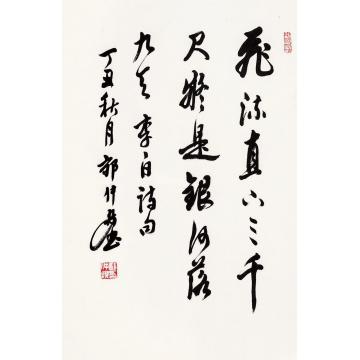 飛流直下三千
尺疑是銀河落
九天 李白詩句
丁丑秋月 郭仲選